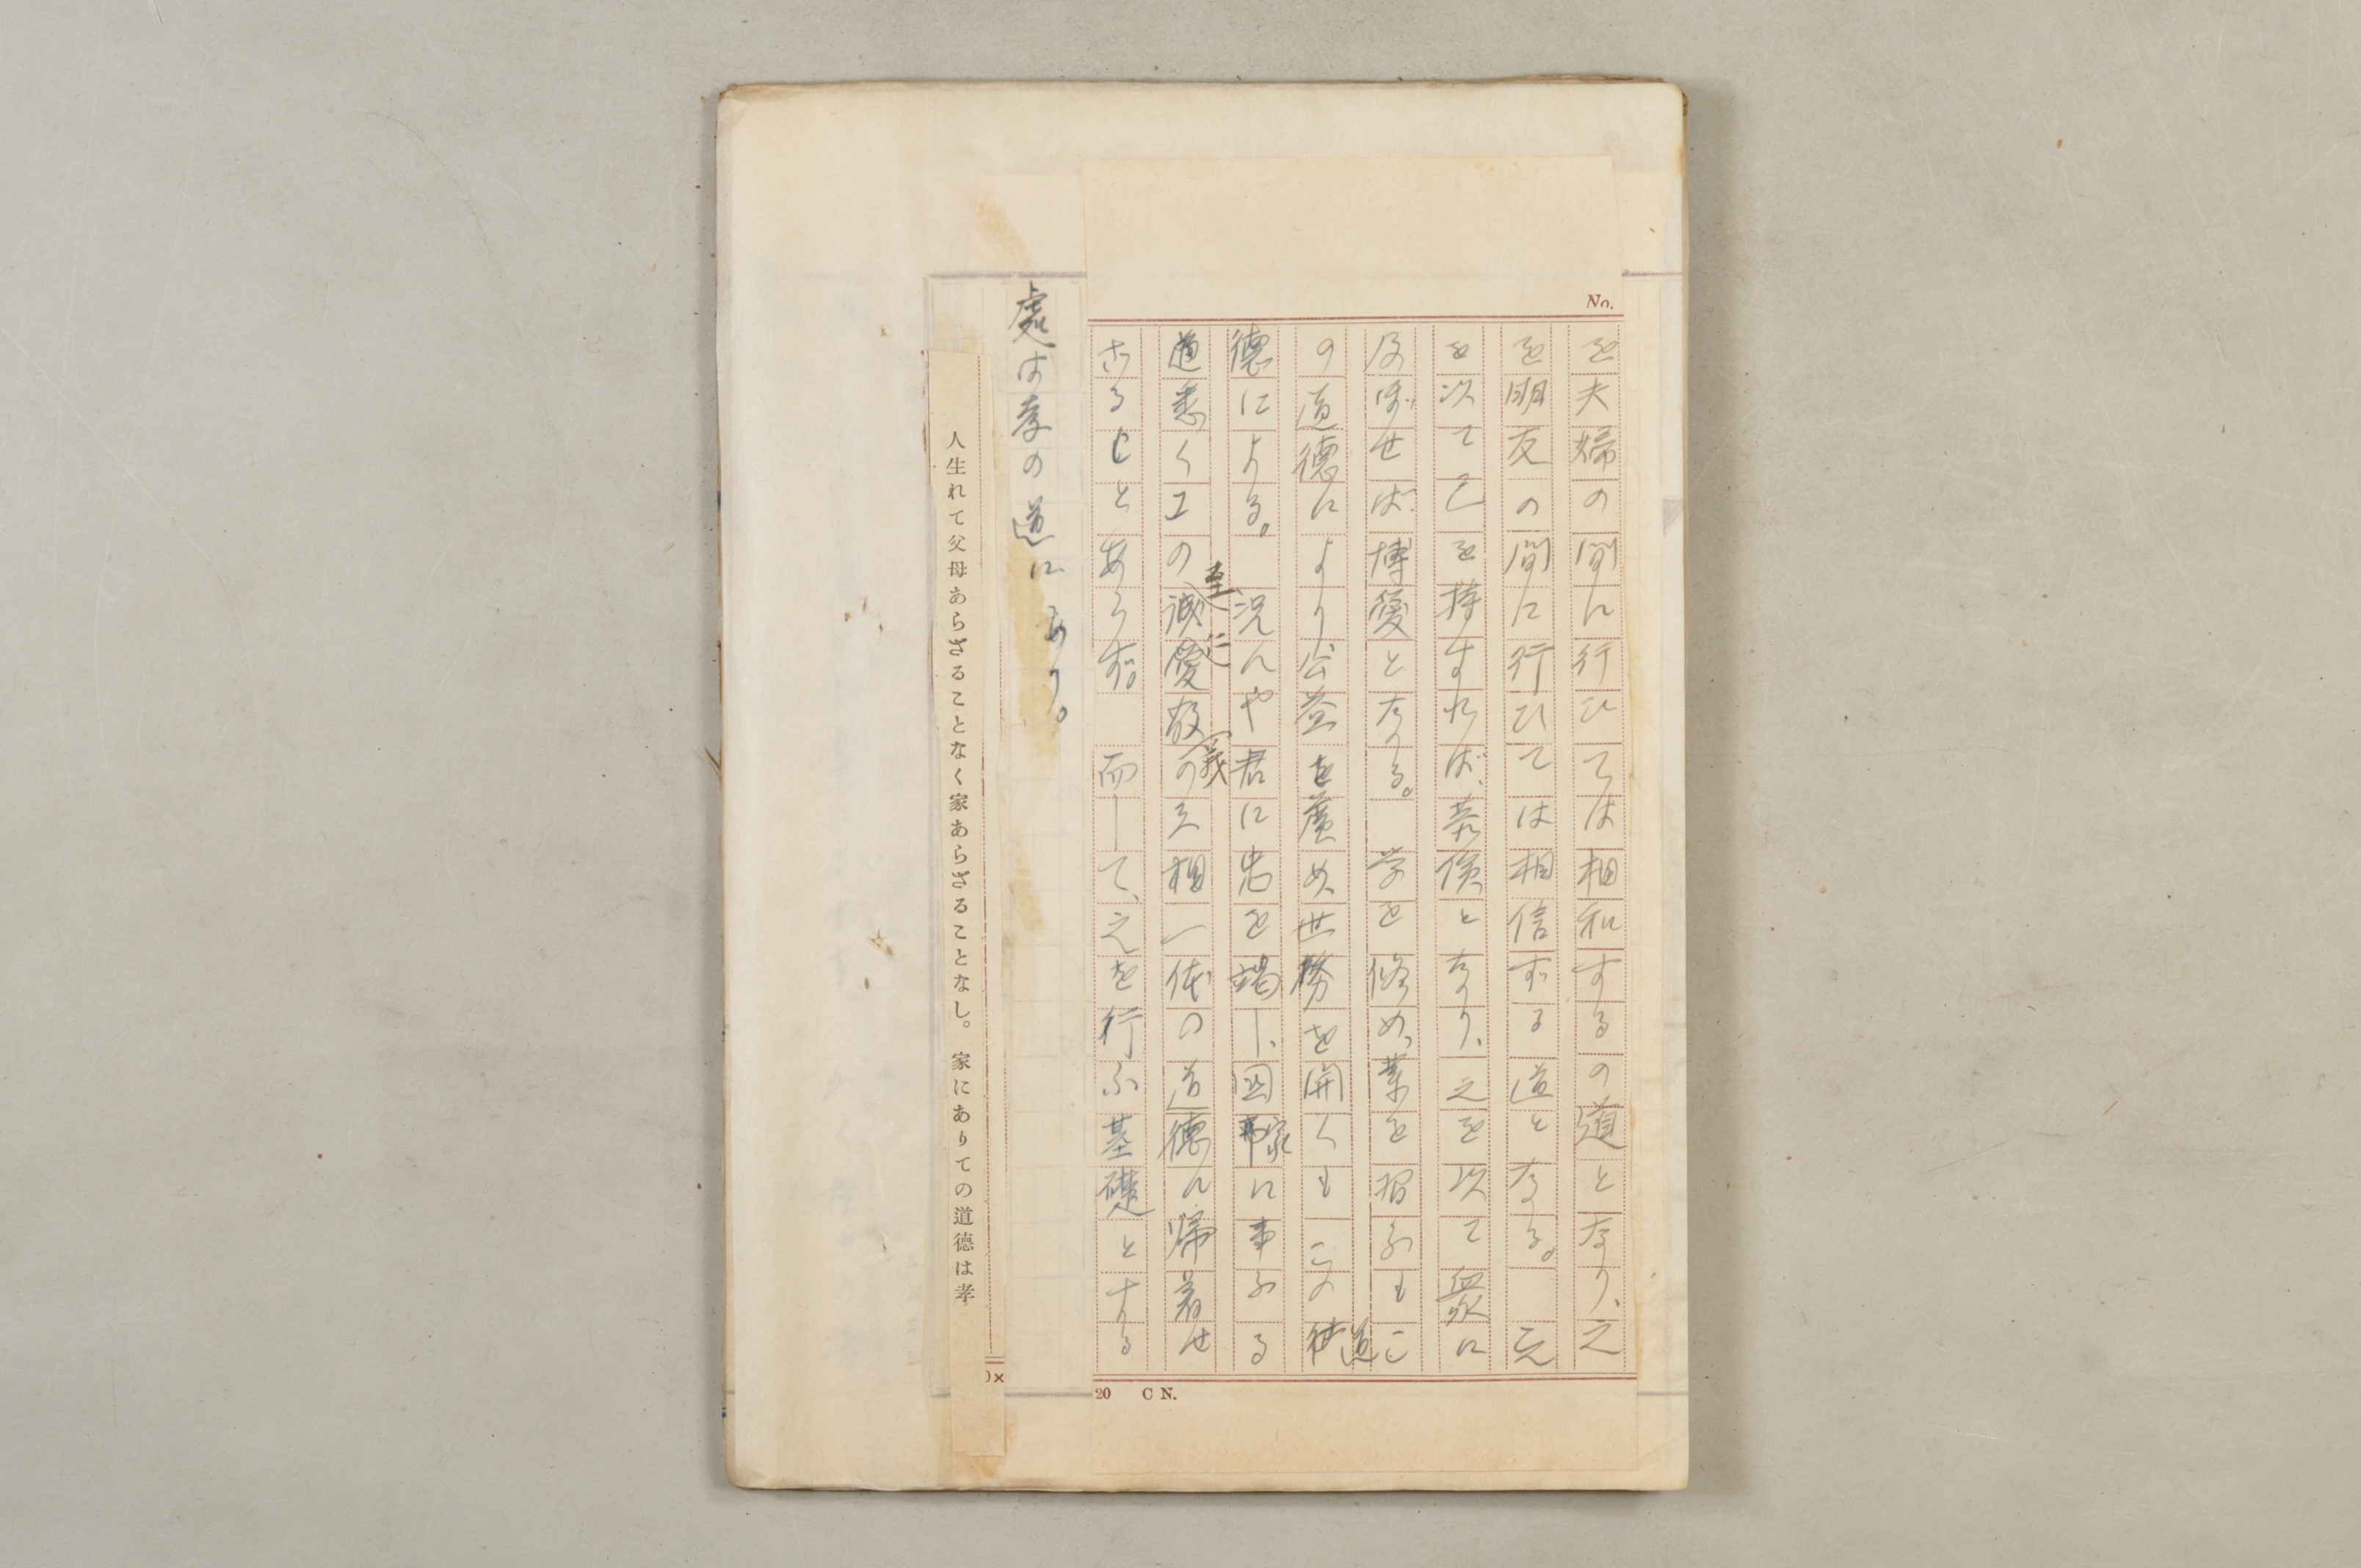 No.
を夫婦の間に行ひては相和するの道となり、之
を朋友の間に行ひては相信ずる道となる。之
を以て己を持すれば、恭倹となり、之を以て衆に
及ぼせば、博愛となる。学を修め、業を習ふもこ
の道徳により、公益を広め、世務を開くもこの道
徳による。況んや君に忠を竭し、国家に事ふる
道悉く
至仁
義
相一体の道徳に帰着せ
ざるこ
とあらず。而して、之を行ふ基礎とする
処は孝の道にあり。
人生れて父母あらざることなく家あらざることなし。家にありての道徳は孝
20 C N.